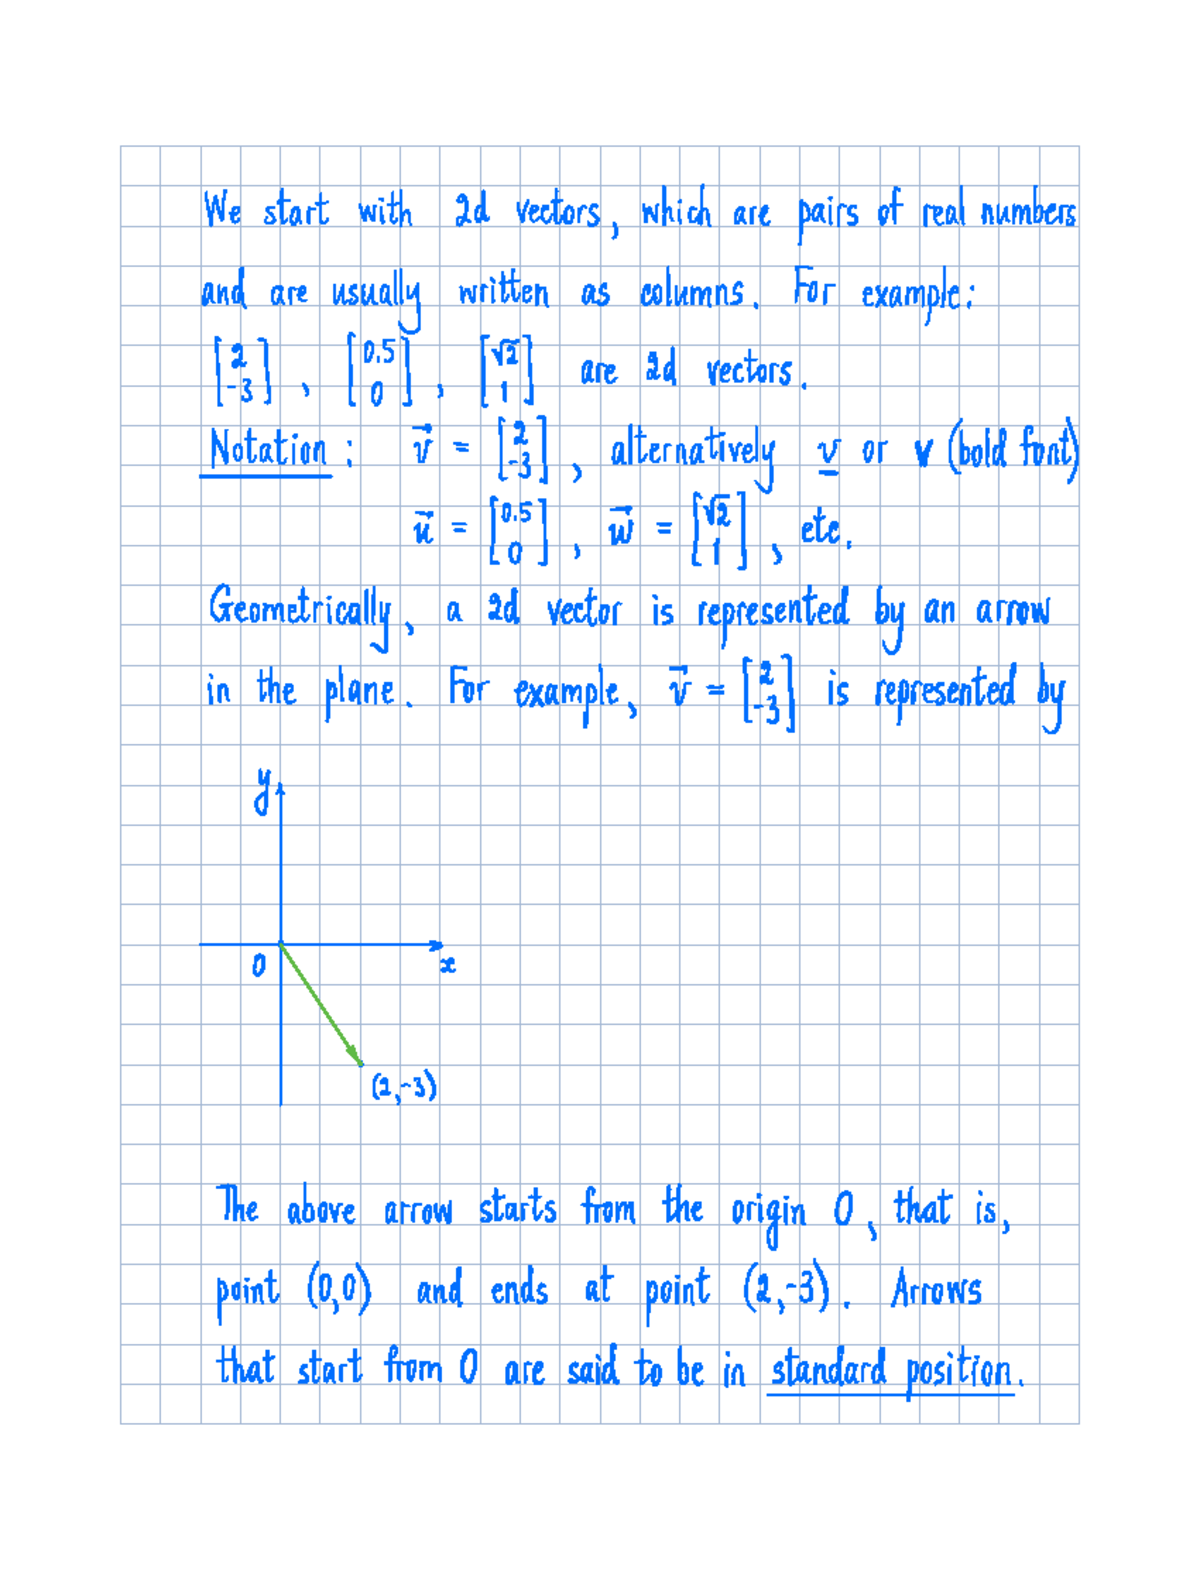 We start with 2d vectors, which are pairs of real numbers
and are usually written as columns. For example:
[2 -3], [0.5 0], [√2 1] are 2d vectors.
Notation: v⃗ = [2 -3], alternatively v̲ or **v** (bold font)
u⃗ = [0.5 0], w⃗ = [√2 1], etc.
Geometrically, a 2d vector is represented by an arrow
in the plane. For example, v⃗ = [2 -3] is represented by
y
0 x
(2,-3)
The above arrow starts from the origin 0, that is,
point (0,0) and ends at point (2,-3). Arrows
that start from 0 are said to be in standard position.